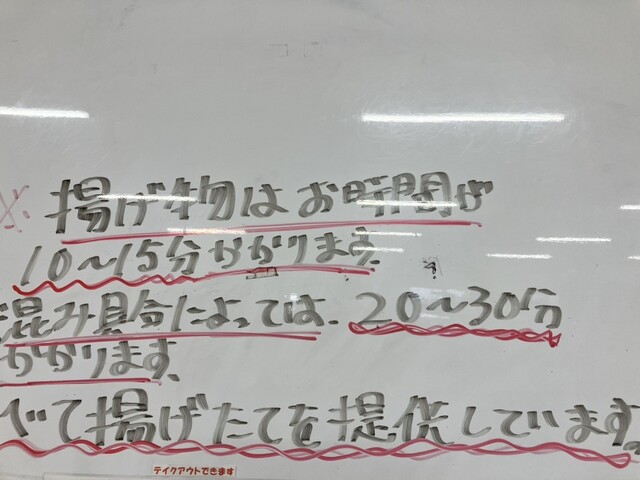 ※ 揚げ物はお時間が
10〜15分かかります。
混み具合によっては、20〜30分
かかります。
べて揚げたてを提供しています。
テイクアウトできます